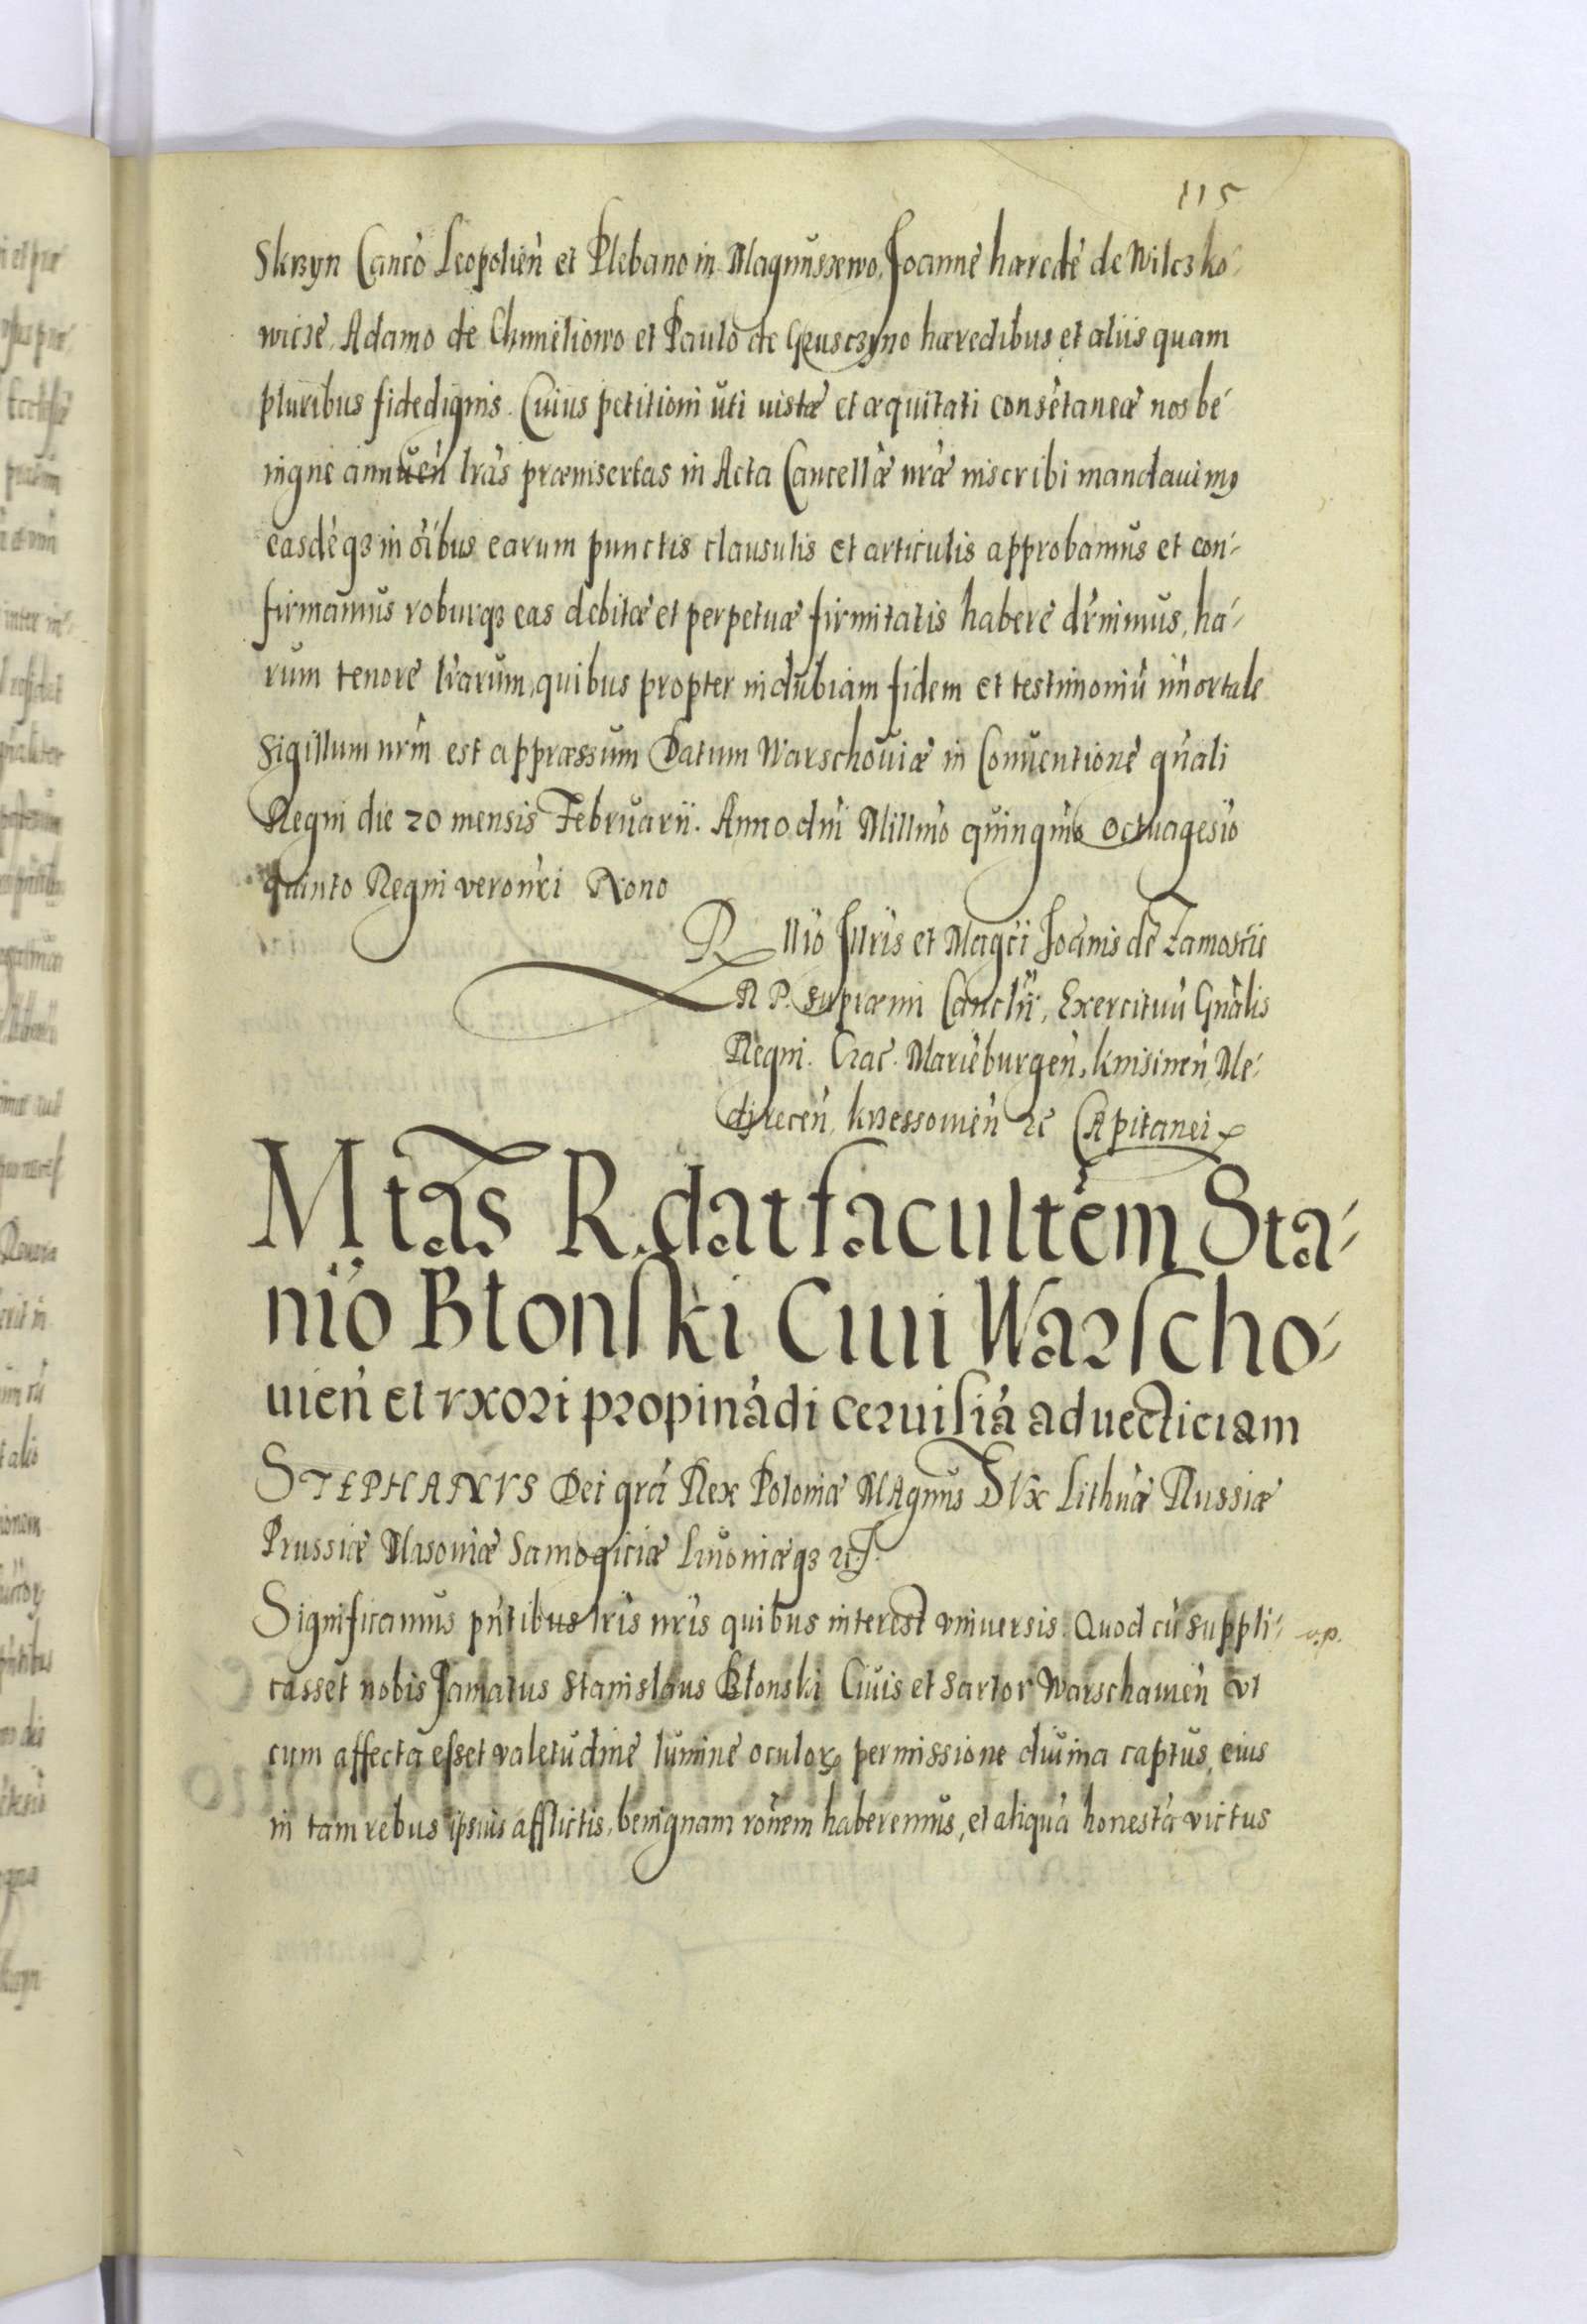 115
Skrzyn Canco Leopolień et Plebano in Magnuszewo, Joanne hærede de Wilczko-
wicze, Adamo de Chmieliowo et Paulo de Gruszczyno hæredibus et aliis quam
pluribus fidedignis. Cuius petitioni uti iustæ et æquitati consētaneæ nos be-
nigne annuen lrás præinsertas in Acta Cancellæ nræ inscribi mandauimꝰ
easdēqꝫ in oībus earum punctis clausulis et articulis approbamus et con-
firmamus roburqꝫ eas debitæ et perpetuæ firmitatis habere drnimus, ha-
rum tenore lrarum, quibus propter indubiam fidem et testimoniū imortale
Sigillum nrm est appræssum Datum Warschouiæ in Conuentione gnali
Regni die 20 mensis Februarii. Anno dni Millmo quingmo octuagesio
quinto Regni vero nri Nono
Rllio Illris et Magci Joanis de Zamoscie
R P. supræmi Canclrii, Exercituū Gnalis
Regni. Crac. Marieburgeń, knisineń, Me-
direceń, krzessouień ꝛc Capitanei
Mtas R. dat facultem Sta-
nio Błonski Ciui Warscho-
uień et vxori propinādi ceruisiā aducticiam
STEPHANVS Dei gra Rex Poloniæ MAgnus DVx Lithuæ Russiæ
Prussiæ Masouiæ Samogitiæ Liuoniæqꝫ ꝛc.
Significamus pntibus lris nris quibus interest vniuersis. Quod cū suppli- v.p.
casset nobis famatus Stanislaus Błonski Ciuis et Sartor Warschauień vt
cum affecta esset valetudine lumine oculoꝝ permissione diuina captus, eius
in tam rebus ipsius afflictis, benignam ronem haberemus, et aliquā honestā victus